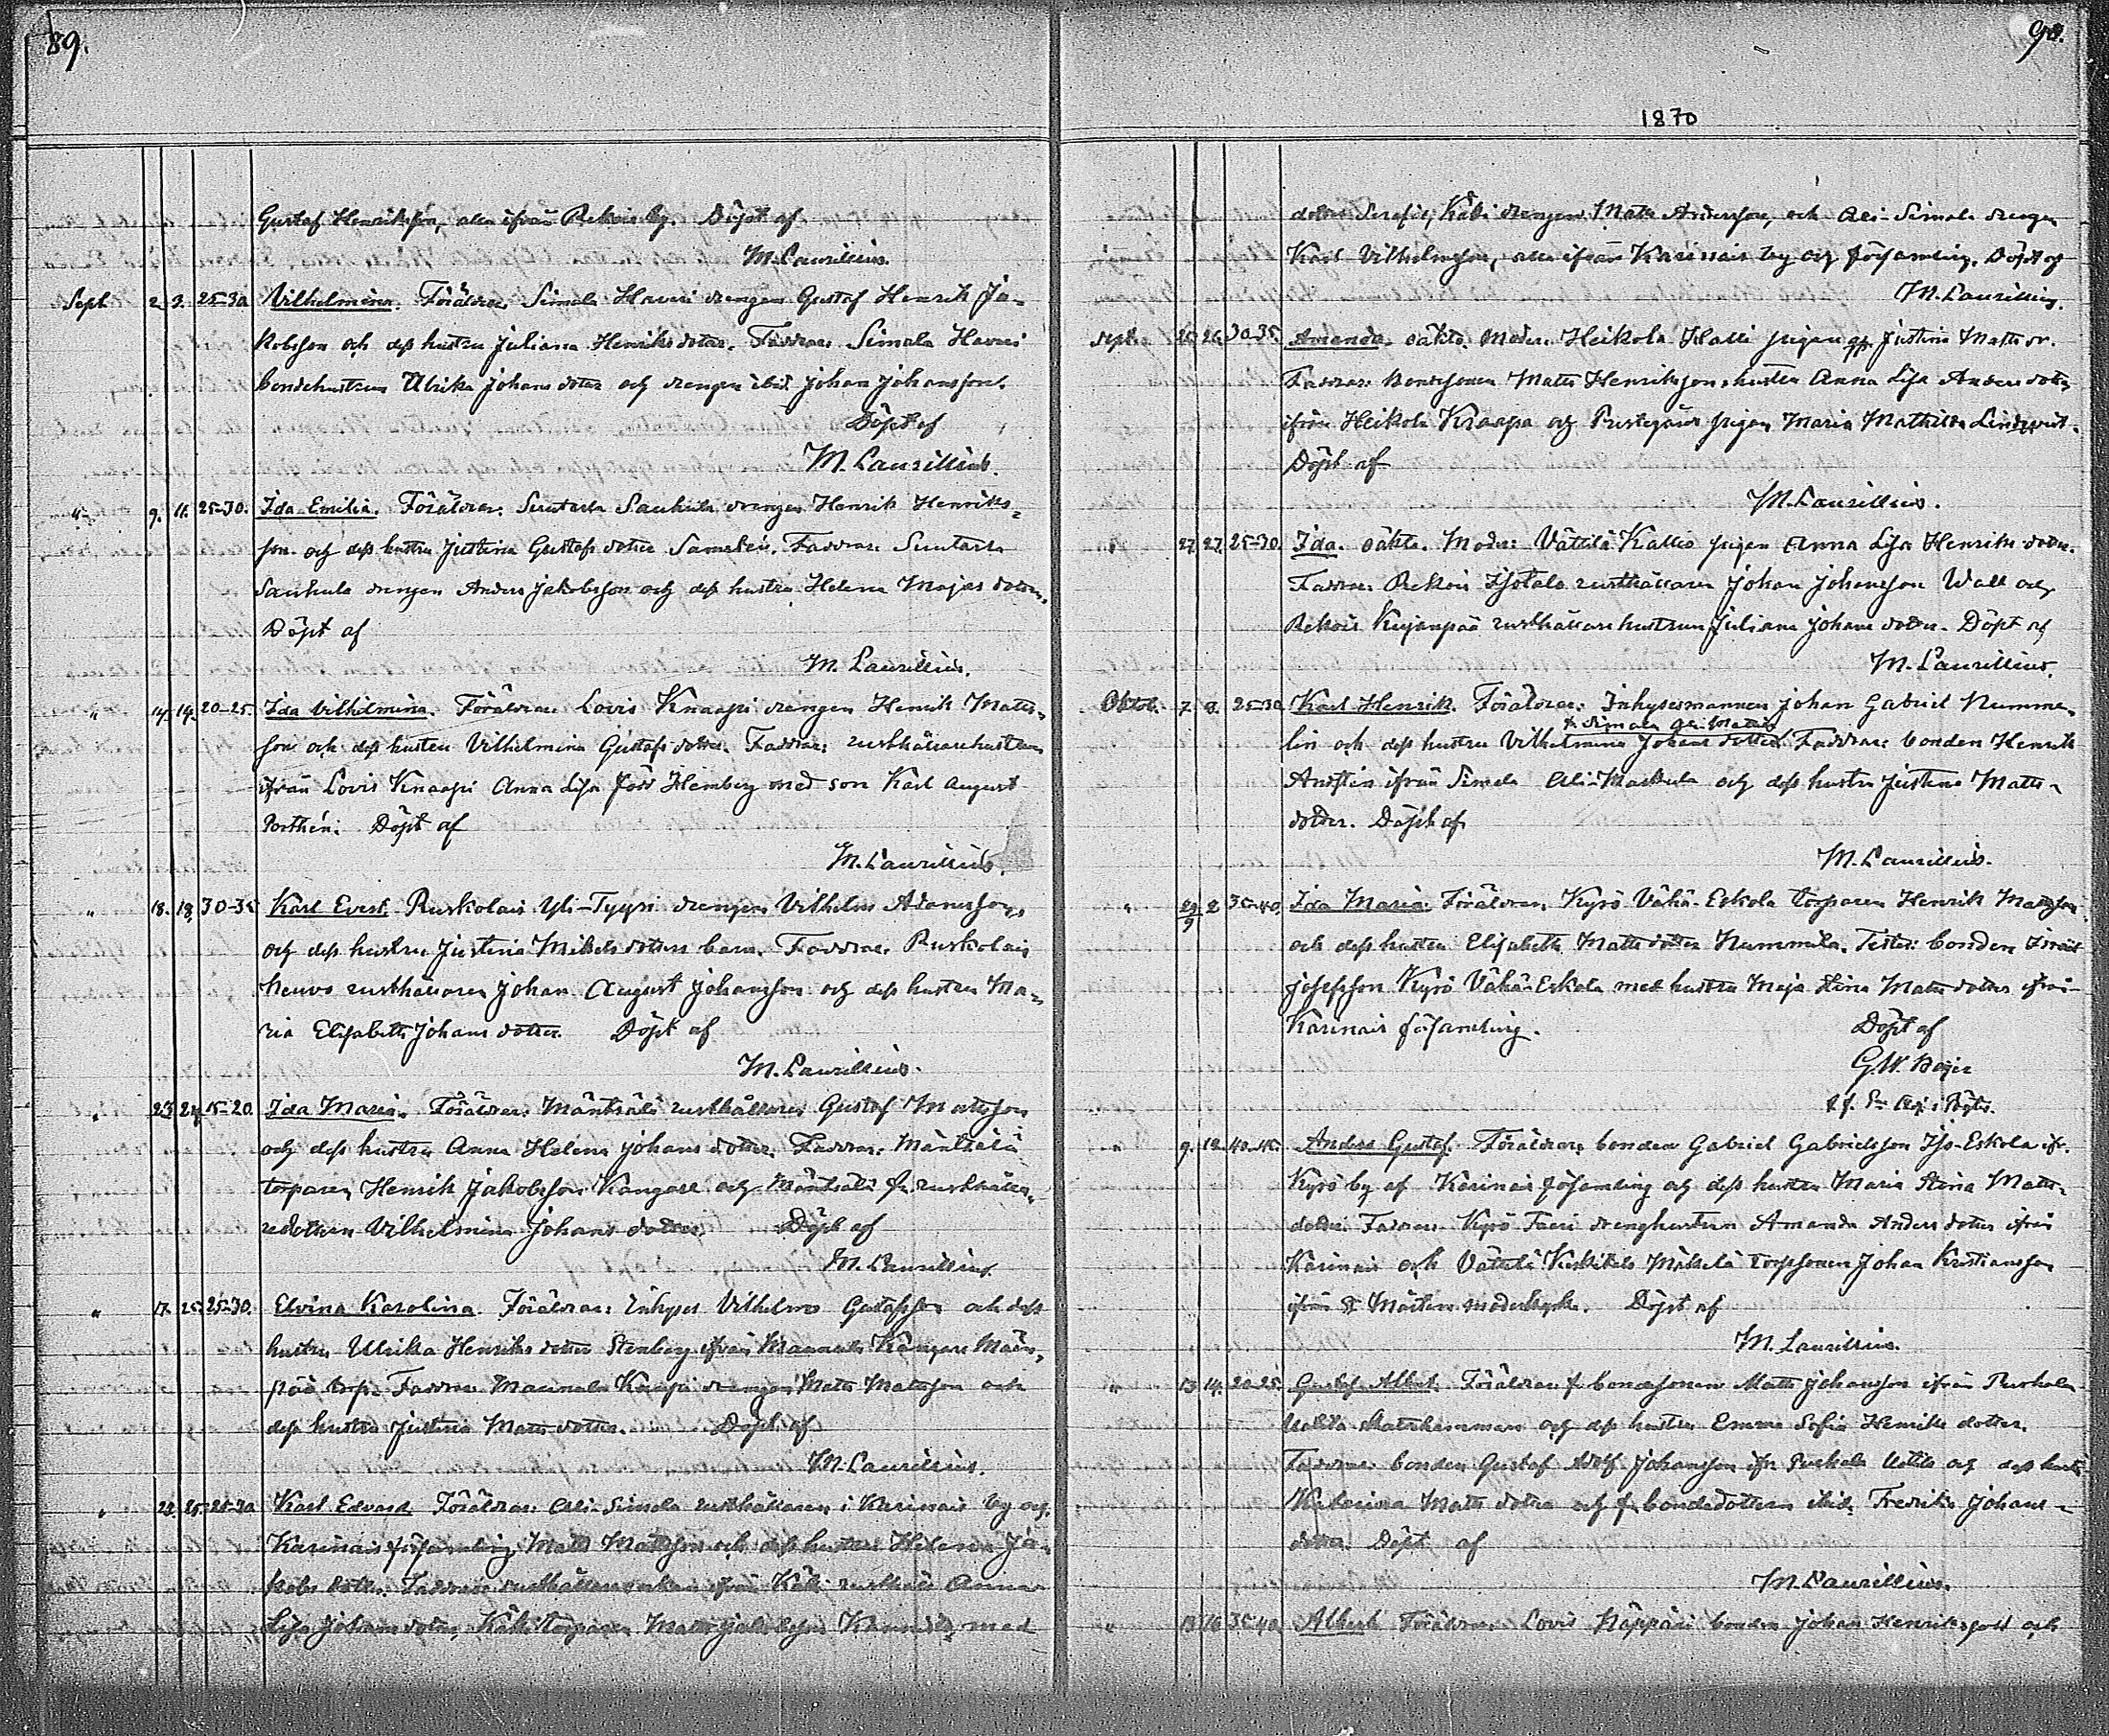 89.
Gustaf Henriksson, alla ifrån Rekois by. Döpt af
M. Laurillius.
Sept 2. 3. 25-30. Vilhelmina. Föräldrar, Simala Haveri drengen Gustaf Henrik Ja-
kobsson och dess hustru Juliana Henriks dotter. Faddrar Simala Haveri
bondehustrun Ulrika Johans dotter och drengen ibid. Johan Johansson.
Döpt af
M. Laurillius.
" 9. 11. 25-30. Ida Emilia. Föräldrar: Suutarla Sauhula drengen Henrik Henriks-
son och dess hustru Justina Gustafs dotter Samslén. Faddrar: Suutarla
Sauhula drengen Anders Jakobsson och dess hustru Helena Majas dotter.
Döpt af
M. Laurillius.
" 14. 14. 20-25. Ida Vilhelmina. Föräldrar: Lovis Knaapi drengen Henrik Matts-
son och dess hustru Vilhelmina Gustafs dotter. Faddrar: rusthållarehustrun
ifrån Lovis Knaapi Anna Lisa född Hemberg med son Karl August
Porthén. Döpt af
M. Laurillius.
" 18. 18. 30-35 Karl Evert. Ruskolais Yli-Tyyri drengen Vilhelm Adamsson,
och dess hustru Justina Mikels dotters barn. Faddrar. Ruskolais
Heuvo rusthållaren Johan August Johansson och dess hustru Ma-
ria Elisabeth Johans dotter. Döpt af
M. Laurillius.
" 23. 24. 15-20. Ida Maria. Föräldrar: Mäntsälä rusthållaren Gustaf Mattsson
och dess hustru Anna Helena Johans dotter. Faddrar: Mäntsälä
torparen Henrik Jakobsson Kangare och Mäntsälä f.d. rusthålla-
redottren Vilhelmina Johans dotter. Döpt af
M. Laurillius.
" 17. 25. 25-30. Elvina Karolina. Föräldrar: Inhyses Vilhelm Gustafsson och dess
hustru Ulrika Henriks dotter Stenberg ifrån Maunula Kangare Mäen-
pää torp. Faddrar Maunula Knaapi drengen Matts Mattsson och
dess hustru Justina Matts dotter. Döpt af
M. Laurillius.
" 23. 25. 25-30 Karl Edvard. Föräldrar: Ali-Simola rusthållaren i Karinais by och
Karinais församling, Matts Mattsson och dess hustru Helena Ja-
kobs dotter. Faddrar: rusthållareenkan ifrån Käki rusthåll Anna
Lisa Johans dotter, Käki torparen Matts Jakobsson med
90.
1870
dotter Serafia, Käki drengen Matts Andersson, och Ali-Simola drengen
Karl Vilhelmsson, alla ifrån Karinais by och församling. Döpt af
M. Laurillius.
Sept. 26. 26. 30-35. Amanda. oäkta. Moder: Heikola Halli pigan Justina Matts dr.
Faddrar: bondesonen Matts Henriksson, hustru Anna Lisa Anders dotter
ifrån Heikola Knaapa och Prestegårds pigan Maria Mathilda Lindqvist.
Döpt af
M. Laurillius.
" 27. 27. 25-30. Ida. oäkta. Moder: Vättilä Kallio pigan Anna Lisa Henriks dotter.
Faddrar Rekois Isotalo rusthållaren Johan Johansson Wall och
Rekois Kujanpää rusthållarehustrun Juliana Johans dotter. Döpt af
M. Laurillius.
Oktob. 7. 8. 25-30 Karl Henrik. Föräldrar: Inhysesmannen Johan Gabriel Numme-
x Simala Ali-Mattis
lin och dess hustru Vilhelmina Johans dotter. Faddrar: bonden Henrik
Andstén ifrån Simala Ali-Mattula och dess hustru Justina Matts-
dotter. Döpt af
M. Laurillius.
" 29/9 2 35-40. Ida Maria. Föräldrar. Kyrö Vähä-Eskola torparen Henrik Mattsson
och dess hustru Elisabeth Matts dotter Nummila. Testes: bonden Israel
Josefsson Kyrö Vähä-Eskola med hustru Maja Stina Matts dotter ifrån
Karinais församling. Döpt af
G.W.
" 9. 12. 40-45. Anders Gustaf. Föräldrar, bonden Gabriel Gabrielsson Iso-Eskola ifr.
Kyrö by af Karinais församling och dess hustru Maria Stina Matts-
dotter. Faddrar: Kyrö drenghustrun Amanda Anders dotter ifrån
Karinais och Vättilä Mäkelä torpsonen Johan Kristiansson
ifrån St Mårtens moderkyrka. Döpt af
M. Laurillius.
" 13 14. 20-25. Gustaf Albert. Föräldrar f. bondesonen Matts Johansson ifrån Puskola
Uotila och dess hustru Emma Sofia Henriks dotter.
Faddrar: bonden Gustaf Adolf Johansson ifr. Puskola Uotila och dess hustr
Katarina Matts dotter och f. bondedottren ibid. Fredrika Johans-
dotter. Döpt af
M. Laurillius.
" 13 16 35-40. Albert Föräldrar: Lovis Käppäri bonden Johan Henriksson och